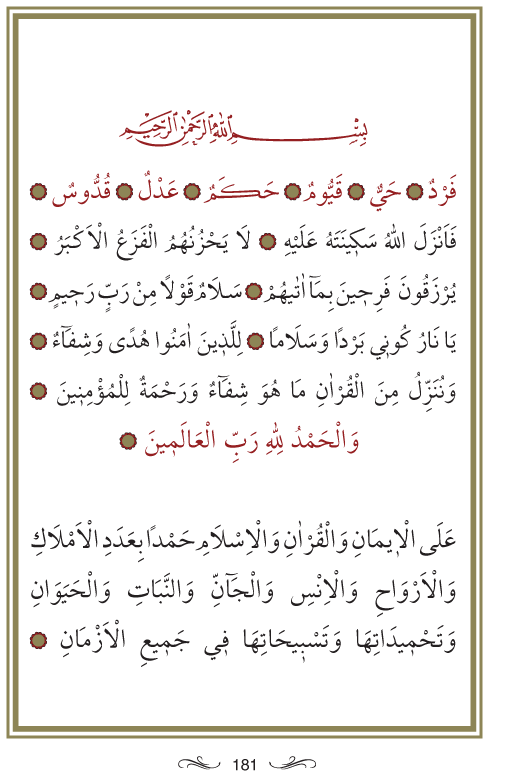 بِسْمِ اللهِ الرَّحْمٰنِ الرَّحِيمِ
فَرْدٌ حَيٌّ قَيُّومٌ حَكَمٌ عَدْلٌ قُدُّوسٌ
فَاَنْزَلَ اللهُ سَكِينَتَهُ عَلَيْهِ لَا يَحْزُنُهُمُ الْفَزَعُ الْاَكْبَرُ
يُرْزَقُونَ فَرِحِينَ بِمَٓا اٰتٰيهُمْ سَلَامٌ قَوْلًا مِنْ رَبٍّ رَحِيمٍ
يَا نَارُ كُونِي بَرْدًا وَسَلَامًا لِلَّذِينَ اٰمَنُوا هُدًى وَشِفَٓاءٌ
وَنُنَزِّلُ مِنَ الْقُرْاٰنِ مَا هُوَ شِفَٓاءٌ وَرَحْمَةٌ لِلْمُؤْمِنِينَ
وَالْحَمْدُ لِلهِ رَبِّ الْعَالَمِينَ
عَلَى الْاِيمَانِ وَالْقُرْاٰنِ وَالْاِسْلَامِ حَمْدًا بِعَدَدِ الْاَمْلَاكِ
وَالْاَرْوَاحِ وَالْاِنْسِ وَالْجَٓانِّ وَالنَّبَاتِ وَالْحَيَوَانِ
وَتَحْمِيدَاتِهَا وَتَسْبِيحَاتِهَا فِي جَمِيعِ الْاَزْمَانِ
181